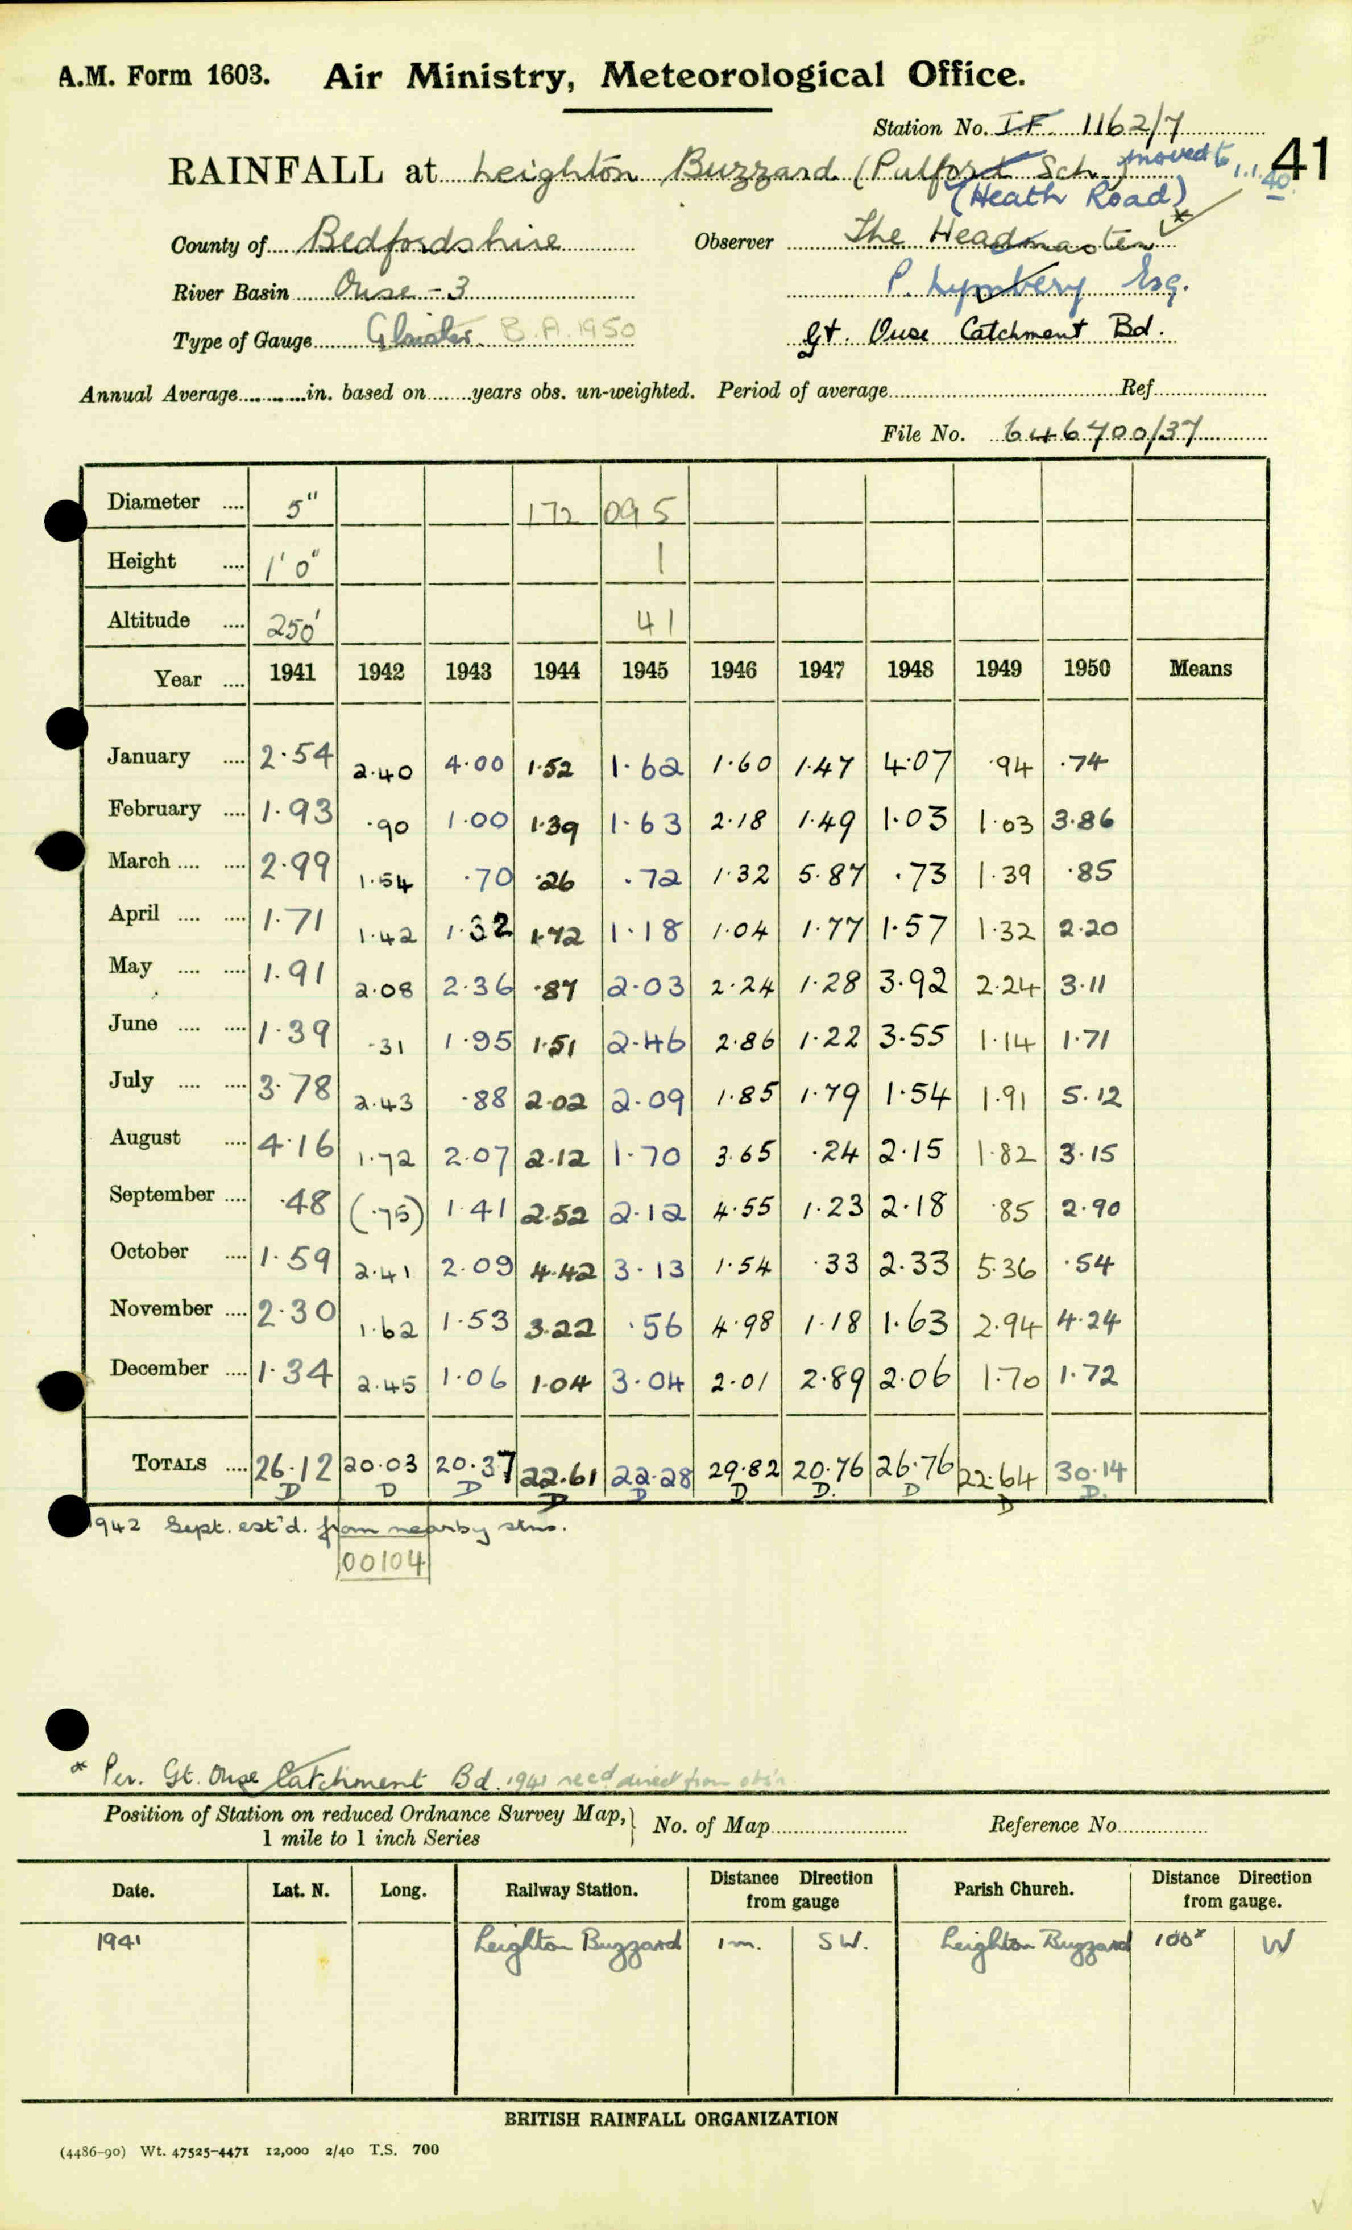 A.M. Form 1603. Air Ministry, Meteorological Office.
Station No. I F 1162/7
RAINFALL at Leighton Buzzard (Pulford Sch.) moved to 1.1.40. 41
(Heath Road)
County of Bedfordshire Observer The Headmaster *
River Basin Ouse - 3 P. Lymbery Esq.
Type of Gauge Glaisher B.A. 1950 Gt. Ouse Catchment Bd.
Annual Average in. based on years obs. un-weighted. Period of average Ref
File No. 646700/37
Diameter 5" 172 095
Height 1' 0" 1
Altitude 250' 41
Year 1941 1942 1943 1944 1945 1946 1947 1948 1949 1950 Means
January 2.54 2.40 4.00 1.52 1.62 1.60 1.47 4.07 .94 .74
February 1.93 .90 1.00 1.39 1.63 2.18 1.49 1.03 1.03 3.86
March 2.99 1.54 .70 .26 .72 1.32 5.87 .73 1.39 .85
April 1.71 1.42 1.32 1.72 1.18 1.04 1.77 1.57 1.32 2.20
May 1.91 2.08 2.36 .87 2.03 2.24 1.28 3.92 2.24 3.11
June 1.39 .31 1.95 1.51 2.46 2.86 1.22 3.55 1.14 1.71
July 3.78 2.43 .88 2.02 2.09 1.85 1.79 1.54 1.91 5.12
August 4.16 1.72 2.07 2.12 1.70 3.65 .24 2.15 1.82 3.15
September .48 (.75) 1.41 2.52 2.12 4.55 1.23 2.18 .85 2.90
October 1.59 2.41 2.09 4.42 3.13 1.54 .33 2.33 5.36 .54
November 2.30 1.62 1.53 3.22 .56 4.98 1.18 1.63 2.94 4.24
December 1.34 2.45 1.06 1.04 3.04 2.01 2.89 2.06 1.70 1.72
TOTALS 26.12 20.03 20.37 22.61 22.28 29.82 20.76 26.76 22.64 30.14
D D D D D D D. D D D.
1942 Sept. est'd. from nearby stns.
00104
* Per. Gt. Ouse Catchment Bd. 1941 recd direct from obs'r
Position of Station on reduced Ordnance Survey Map, } No. of Map Reference No.
1 mile to 1 inch Series
Date. Lat. N. Long. Railway Station. Distance Direction from gauge Parish Church. Distance Direction from gauge.
1941 Leighton Buzzard 1m. SW. Leighton Buzzard 100x W
BRITISH RAINFALL ORGANIZATION
(4486-90) Wt. 47525-4471 12,000 2/40 T.S. 700